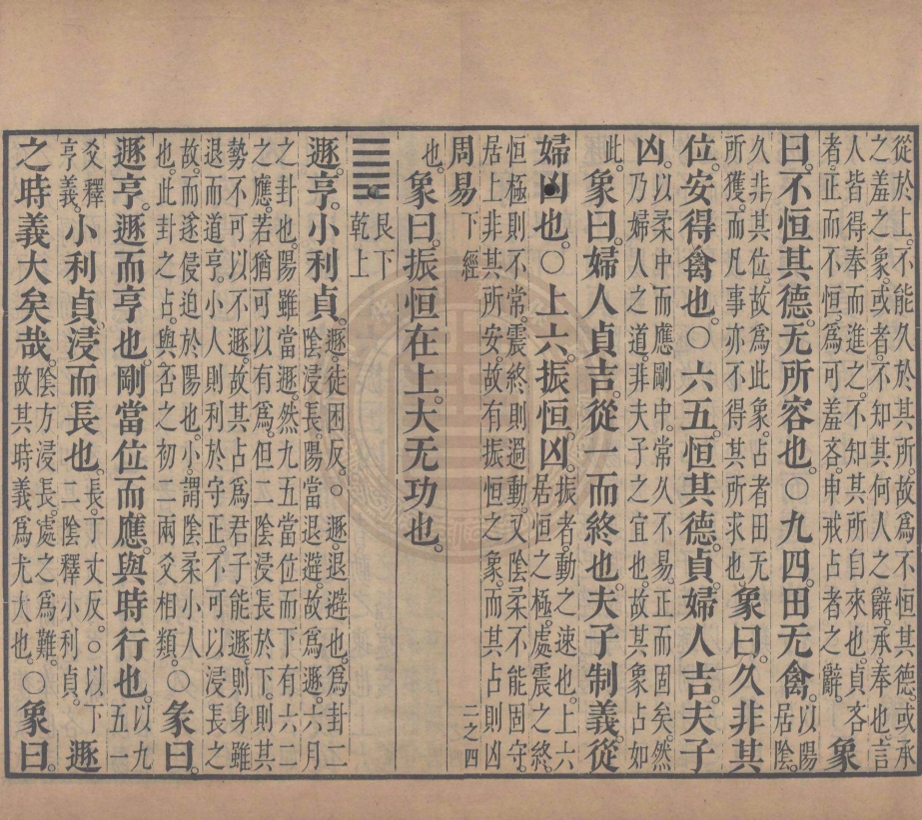 從於上。不能久於其所。故爲不恒其德。或承
之羞之象。或者。不知其何人之辭。承奉也。言
人皆得奉而進之。不知其所自來也。貞吝
者。正而不恒。爲可羞吝。申戒占者之辭。
象
曰。不恒其德。无所容也。○九四。田无禽。
以陽
居陰。
久非其位。故爲此象。占者田无
所獲。而凡事亦不得其所求也。
象曰。久非其
位。安得禽也。○六五。恒其德。貞。婦人吉。夫子
凶。
以柔中而應剛中。常久不易。正而固矣。然
乃婦人之道。非夫子之宜也。故其象占如
此。
象曰。婦人貞吉。從一而終也。夫子制義。從
婦凶也。○上六。振恒凶。
振者。動之速也。上六
居恒之極。處震之終。
恒極則不常。震終則過動。又陰柔不能固守。
居上非其所安。故有振恒之象。而其占則凶
周易 下經 二之四
也。
象曰。振恒在上。大无功也。
艮下
乾上
遯。亨。小利貞。
遯。徒困反。○遯。退避也。爲卦二
陰浸長。陽當退避。故爲遯。六月
之卦也。陽雖當遯。然九五當位。而下有六二
之應。若猶可以有爲。但二陰浸長於下。則其
勢不可以不遯。故其占爲君子能遯。則身雖
退而道亨。小人則利於守正。不可以浸長之
故。而遂侵迫於陽也。小。謂陰柔小人
也。此卦之占。與否之初二兩爻相類。
○彖曰。
遯亨。遯而亨也。剛當位而應。與時行也。
以九
五一
爻釋
亨義。
小利貞。浸而長也。
長。丁丈反。○以下
二陰釋小利貞。
遯
之時義大矣哉。
陰方浸長。處之爲難。
故其時義爲尤大也。
○象曰。